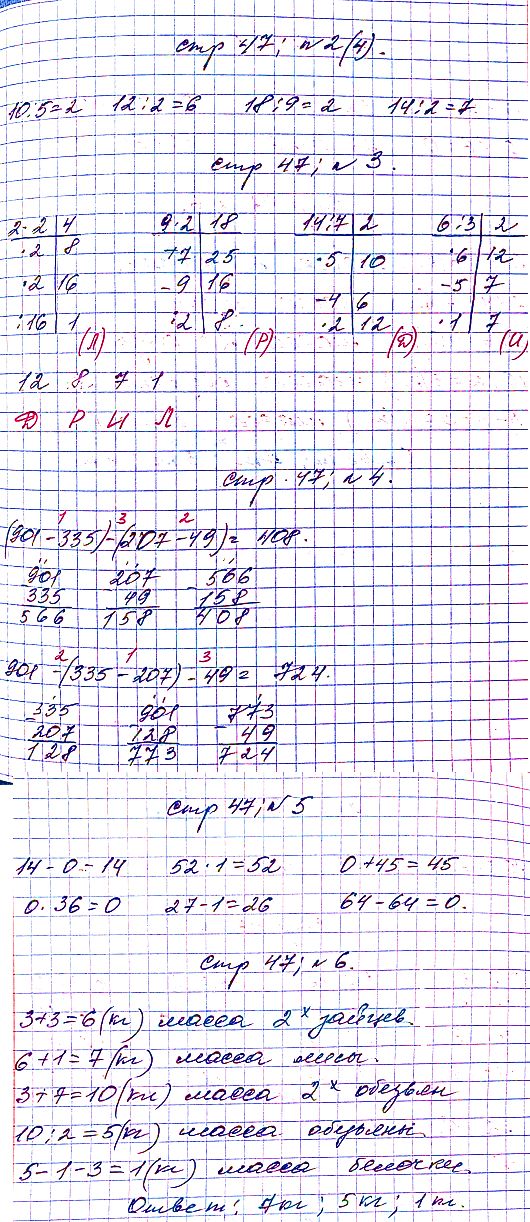 стр 47; №2(4).
10:5=2 12:2=6 18:9=2 14:2=7
стр 47; №3.
2·2 | 4 9·2 | 18 14:7 | 2 6:3 | 2
·2 | 8 +7 | 25 ·5 | 10 ·6 | 12
·2 | 16 -9 | 16 -4 | 6 -5 | 7
:16 | 1 :2 | 8 ·2 | 12 ·1 | 7
(Л) (Р) (Д) (И)
12 8 7 1
Д Р И Л
стр. 47; №4.
1 3 2
(901-335)-(207-49)= 408.
901 207 566
335 49 158
566 158 408
2 1 3
901-(335-207)-49= 724.
335 901 773
207 128 49
128 773 724
стр 47; №5
14-0=14 52·1=52 0+45=45
0·36=0 27-1=26 64-64=0.
стр 47; №6.
3+3=6(кг) масса 2х зайцев.
6+1=7(кг) масса лисы.
3+7=10(кг) масса 2х обезьян
10:2=5(кг) масса обезьяны.
5-1-3=1(кг) масса белочки.
Ответ: 7кг; 5кг; 1кг.